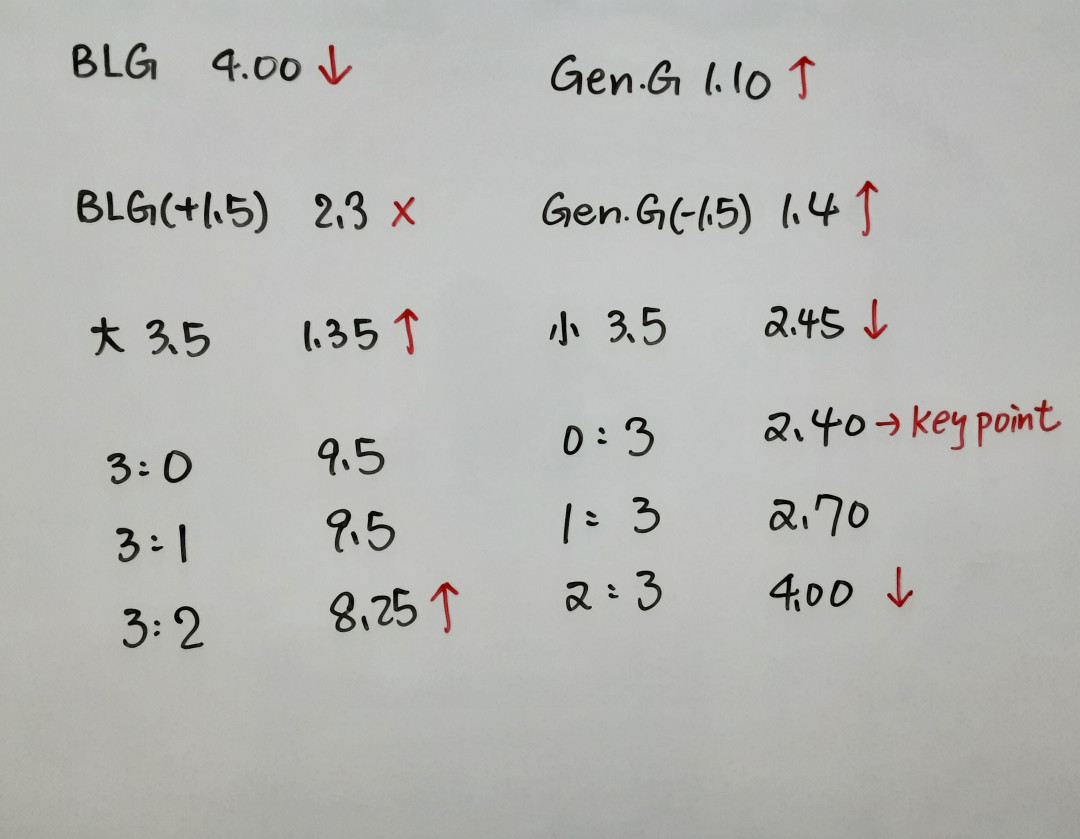 BLG 4.00 ↓ Gen.G 1.10 ↑
BLG(+1.5) 2.3 × Gen.G(-1.5) 1.4 ↑
大 3.5 1.35 ↑ 小 3.5 2.45 ↓
3:0 9.5 0:3 2.40 → key point
3:1 9.5 1:3 2.70
3:2 8.25 ↑ 2:3 4.00 ↓